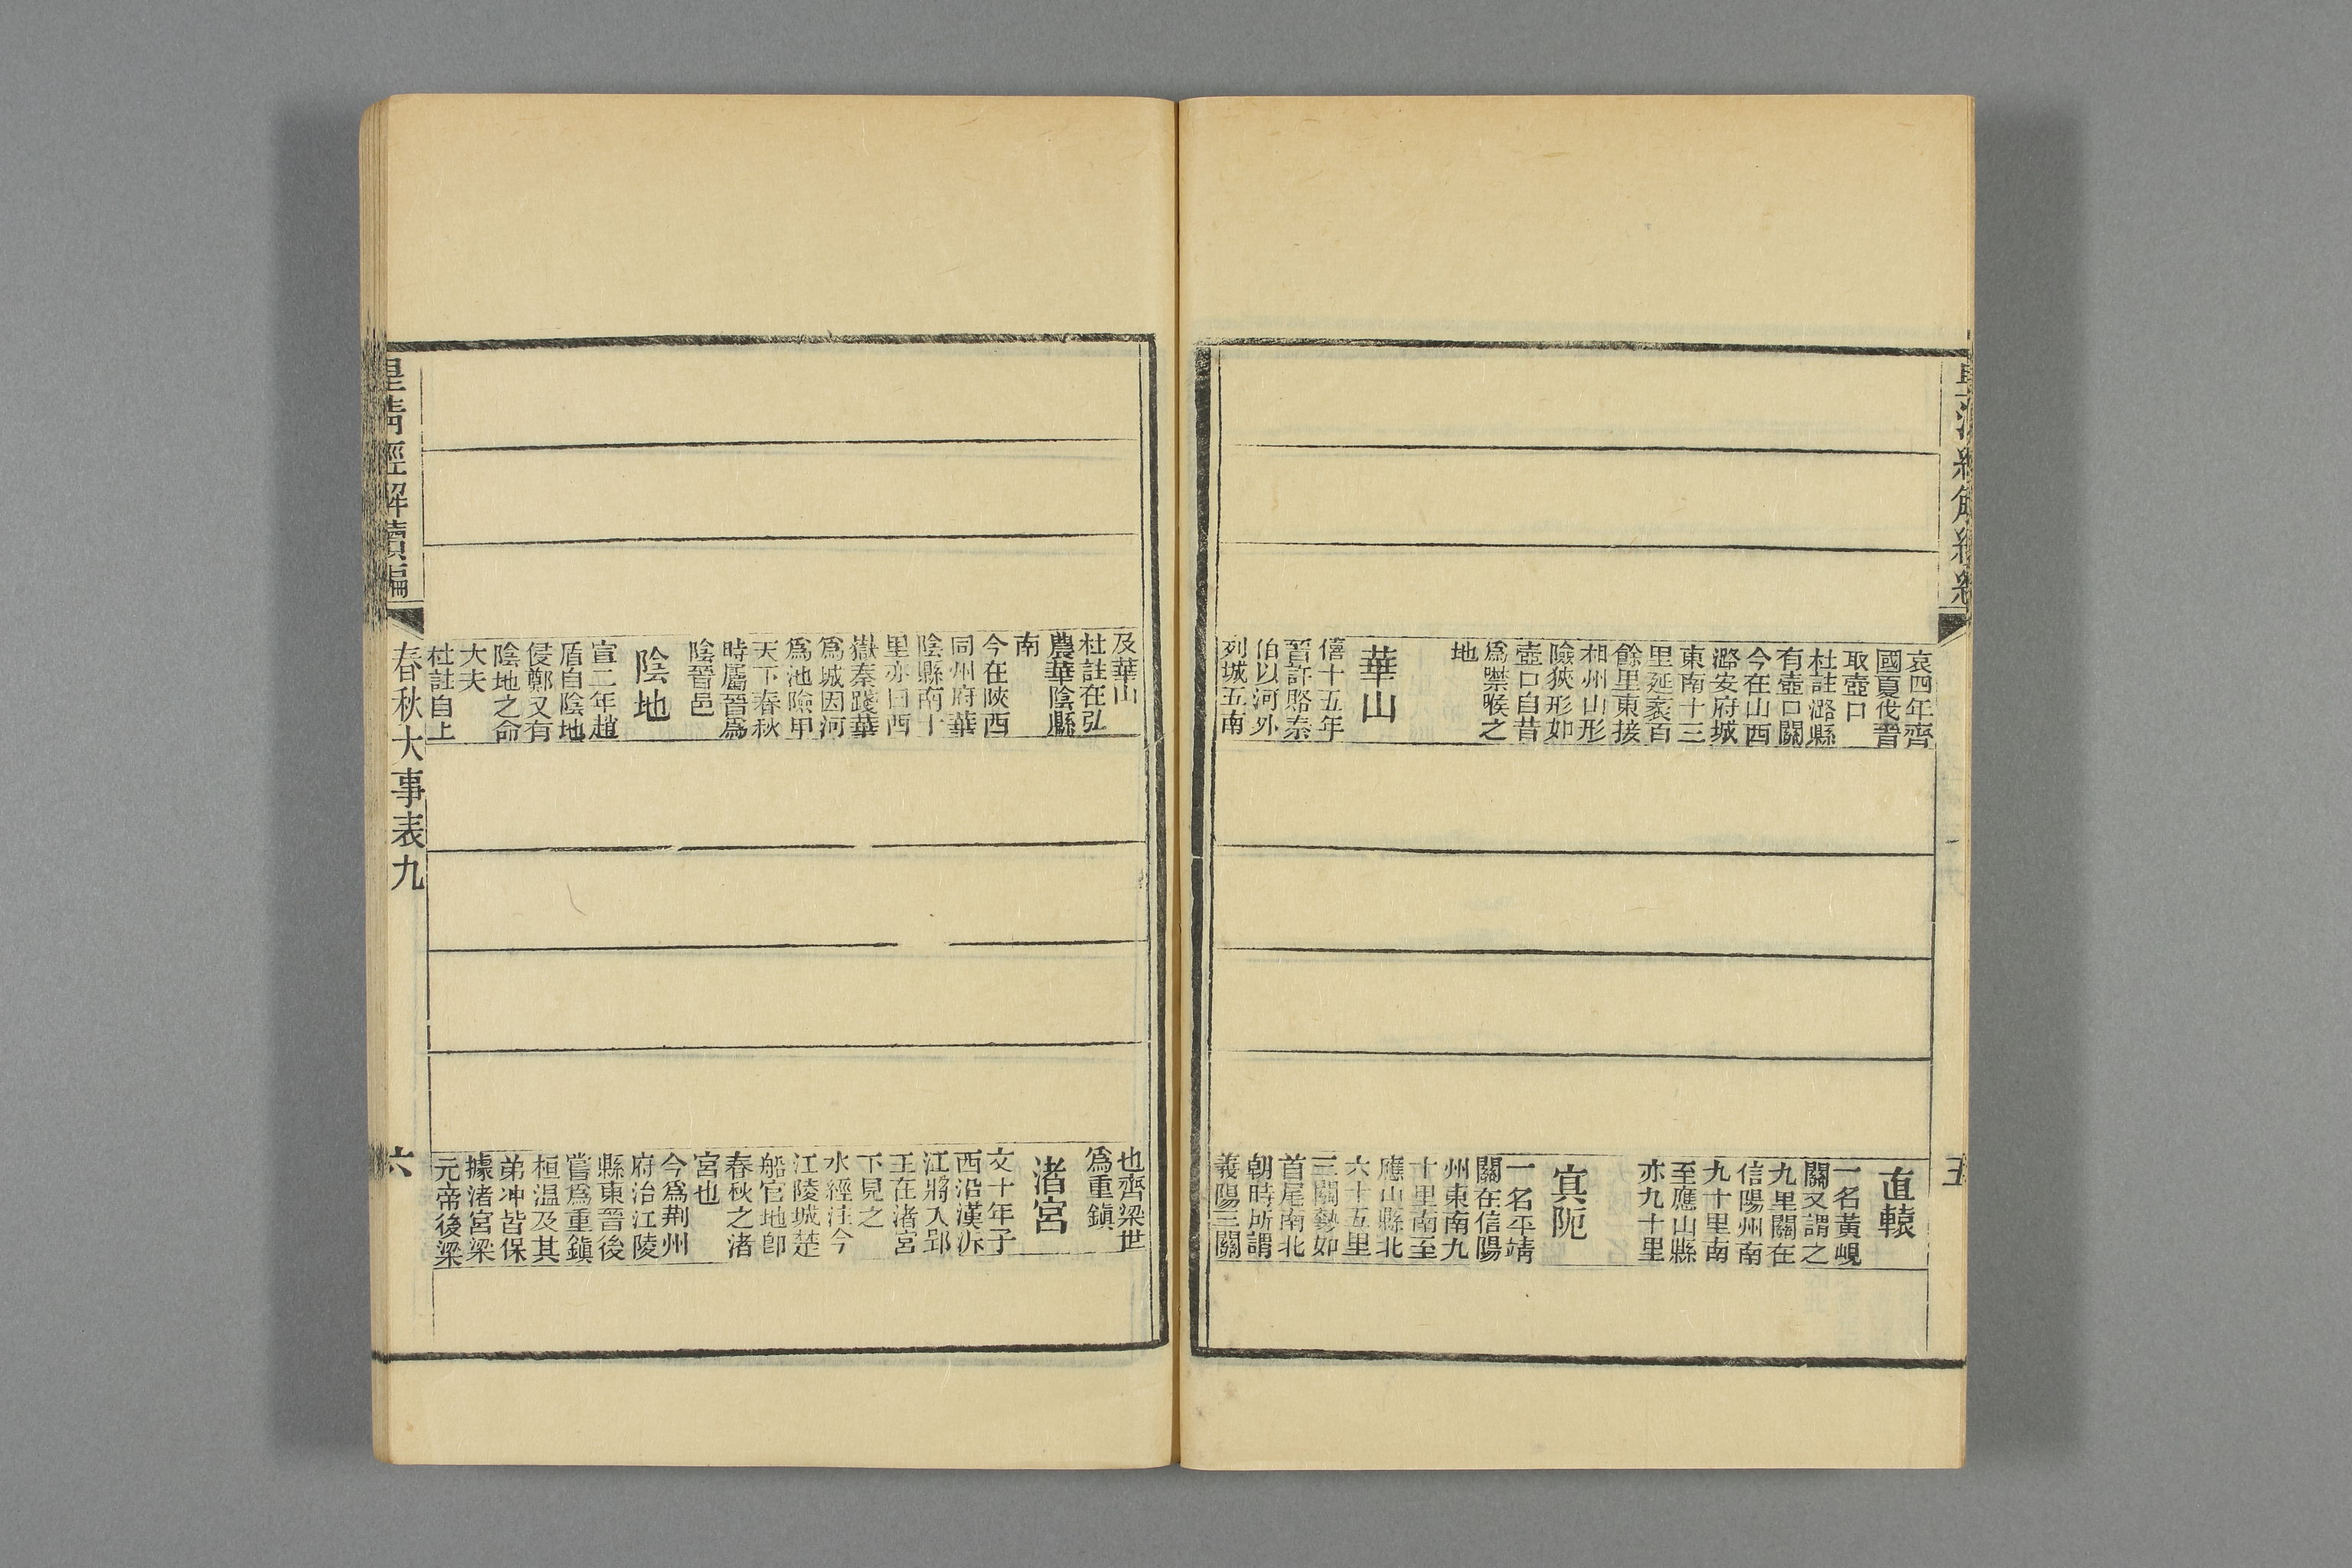 哀四年齊
國夏伐晉
取壺口
杜註潞縣
有壺口關
今在山西
潞安府城
東南十三
里延袤百
餘里東接
相州山形
險狹形如
壺口自昔
爲噤喉之
地
華山
僖十五年
晉許賂秦
伯以河外
列城五南
直轅
一名黃峴
關又謂之
九里關在
信陽州南
九十里南
至應山縣
亦九十里
冥阨
一名平靖
關在信陽
州東南九
十里南至
應山縣北
六十五里
三關勢如
首尾南北
朝時所謂
義陽三關
及華山
杜註在弘
農華陰縣
南
今在陝西
同州府華
陰縣南十
里亦曰西
嶽秦踐華
爲城因河
爲池險甲
天下春秋
時屬晉爲
陰晉邑
陰地
宣二年趙
盾自陰地
侵鄭又有
陰地之命
大夫
杜註自上
也齊梁世
爲重鎭
渚宮
文十年子
西沿漢泝
江將入郢
王在渚宮
下見之
水經注今
江陵城楚
船官地卽
春秋之渚
宮也
今爲荆州
府治江陵
縣東晉後
嘗爲重鎭
桓温及其
弟冲皆保
據渚宮梁
元帝後梁
皇清經解續編
春秋大事表九
六